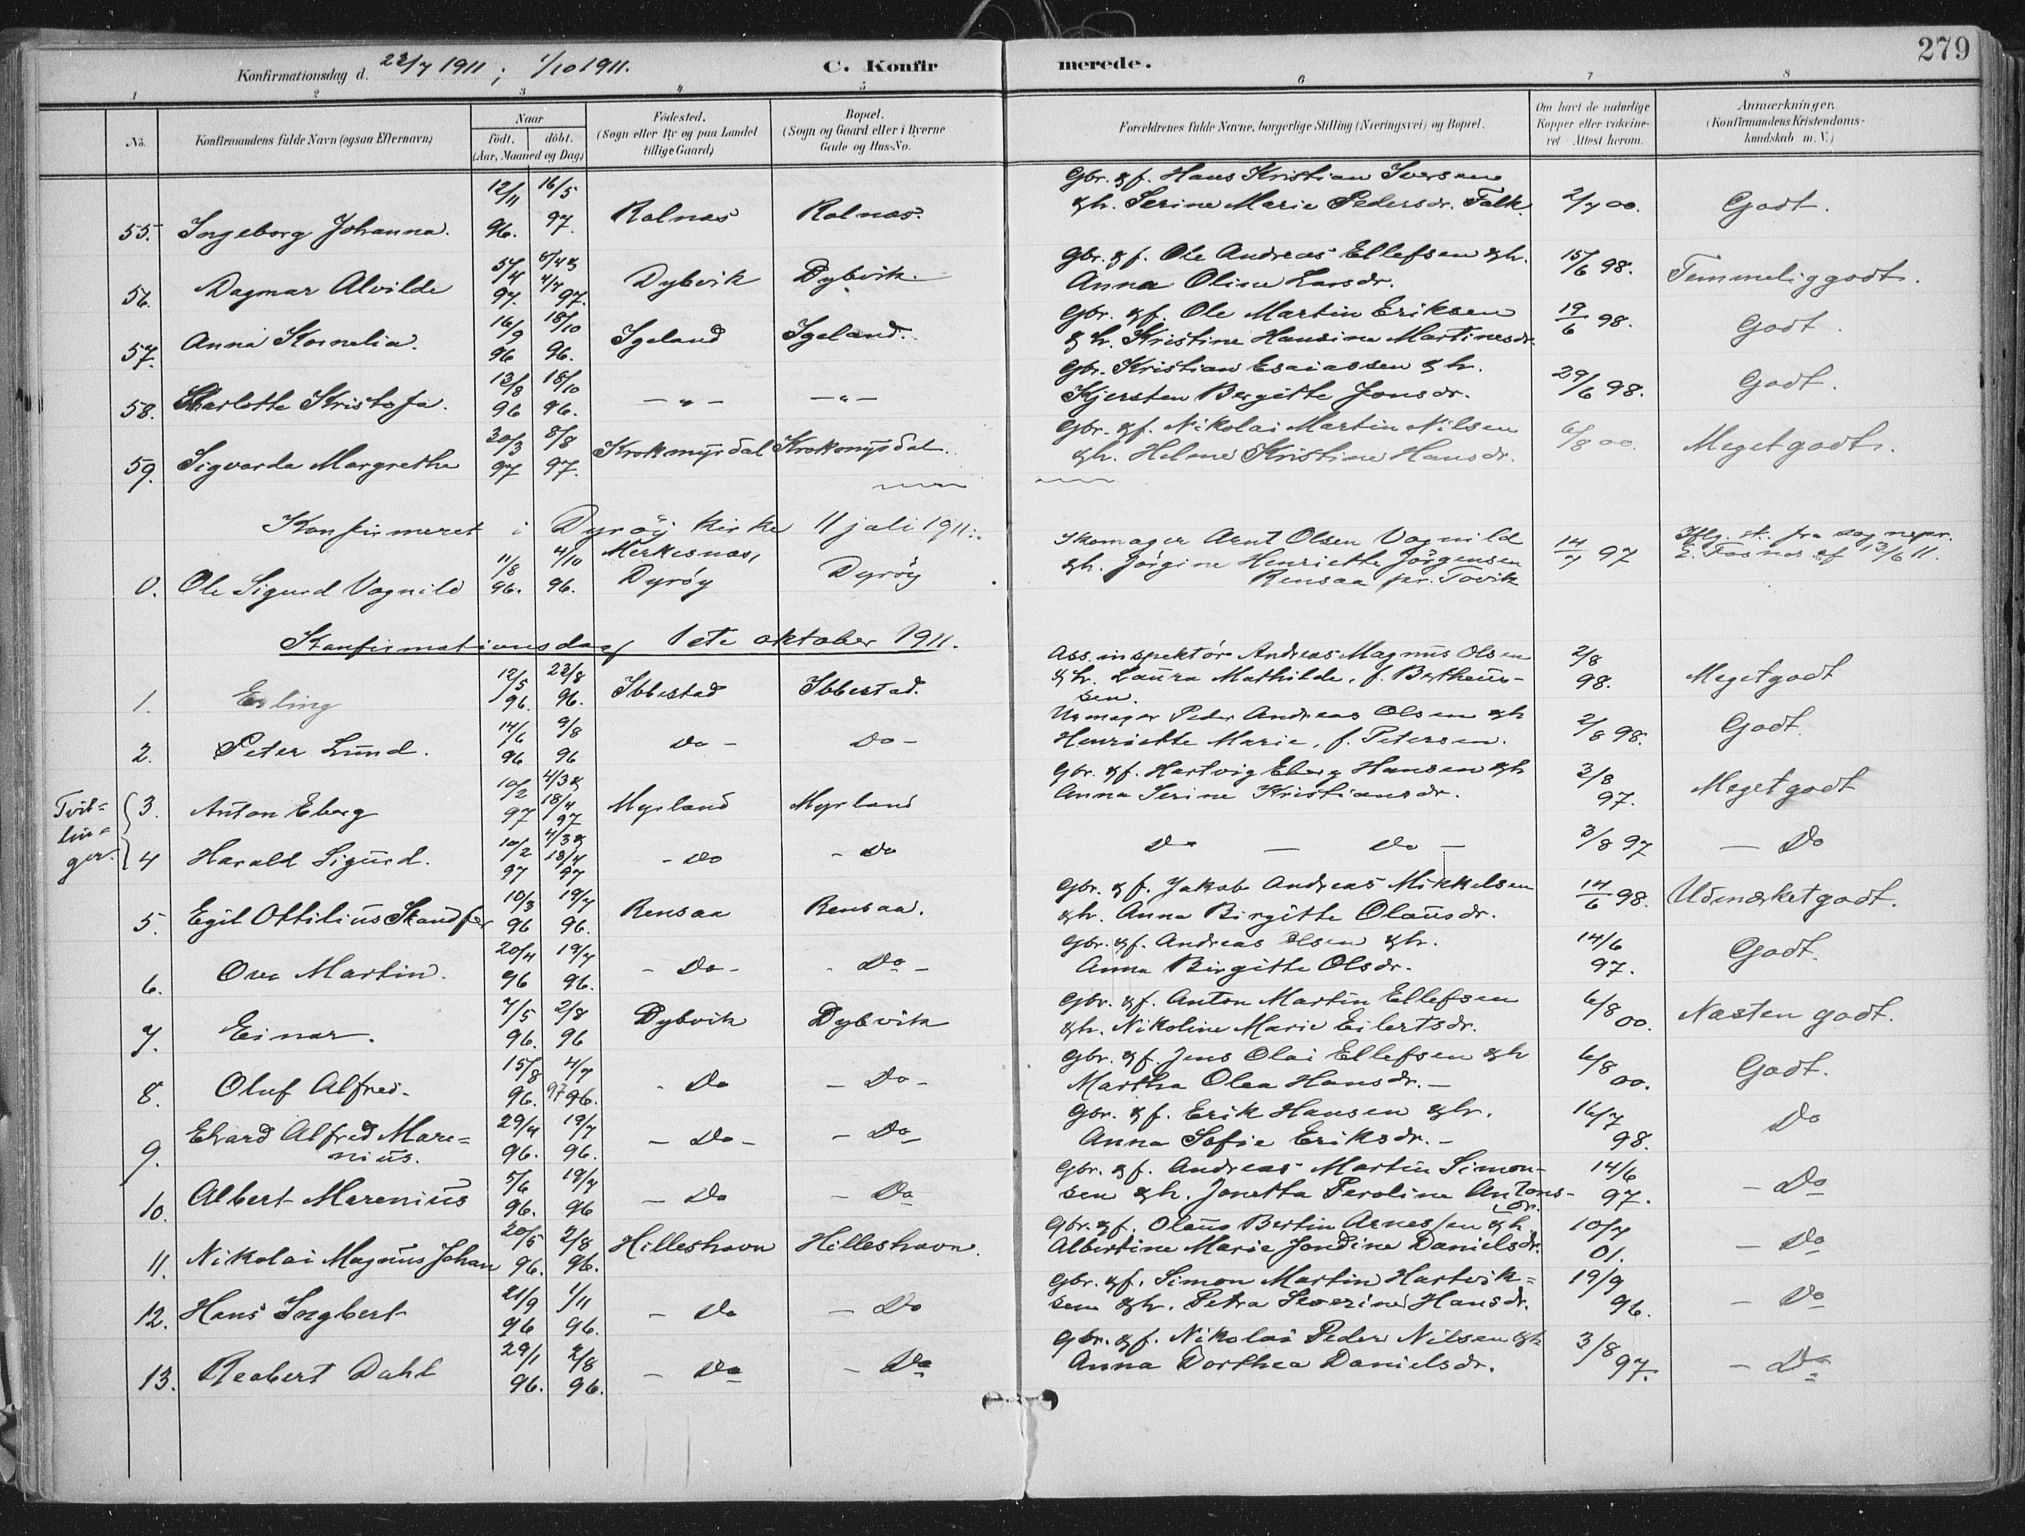 279
Konfirmationsdag d. 22/7 1911; 1/10 1911.
C. Konfirmerede.
1 2 3 4 5 6 7 8
No.
Konfirmandens fulde Navn (ogsaa Efternavn)
Naar
født. døbt.
(Aar, Maaned og Dag)
Fødested.
(Sogn eller By og paa Landet
tillige Gaard)
Bopæl.
(Sogn og Gaard eller i Byerne
Gade og Hus-No.
Forældrenes fulde Navne, borgerlige Stilling (Næringsvei) og Bopæl.
Om havt de naturlige
Kopper eller vakcine-
ret - Attest herom.
Anmærkninger.
(Konfirmandens Kristendoms-
kundskab m. V.)
55. Ingeborg Johanna. 12/11 96. 16/5 97. Rolnæs Rolnæs. Gbr. & f. Hans Kristian Iversen
& h. Serine Marie Pedersdr. Falk. 2/7 00. Godt.
56. Dagmar Alvilde 5/4 97. 97. Dybvik Dybvik. Gbr. & f. Ole Andreas Ellefsen & h.
Anna Oline Larsdr. 15/6 98. Temmelig godt.
57. Anna Kornelia. 16/9 96 18/10 96. Igeland Igeland. Gbr. & f. Ole Martin Eriksen
& h. Kristine Hansine Martinesdr. 19/6 98. Godt.
58. Charlotte Kristofa. 13/8 96 18/10 96. — " — — " — Gbr. Kristian Esaiassen & h.
Kjersten Bergitte Jonsdr. 29/6 98. Godt.
59. Sigvarda Margrethe 20/3 97 8/8 97. Krokmyrdal Krokmyrdal. Gbr. & f. Nikolai Martin Nilsen
& h. Helmes Kristine Hansdr. 6/8 00. Meget godt.
Konfirmeret i Dyrøy kirke 11 juli 1911.
0. Ole Sigurd Vognild 11/8 96. 4/10 96. Merkesnæs, Dyrøy Dyrøy Skomager Arnt Olsen Vognild
& h. Jørgine Henriette Jørgensen
Rensaa pr. Tovik 14/7 97 Iflg. sk. fra sognepr.
E. Fosnes af 13/6 11.
Konfirmationsdag 1ste oktober 1911.
1. Erling 12/5 96. 23/8 96. Ibbestad Ibbestad. Ass. inspektør Andreas Magnus Olsen
& h. Laura Mathilde, f. Bertheus-
sen. 2/8 98. Meget godt
2. Peter Lund. 14/6 96 9/8 96 Do — Do — Urmager Peder Andreas Olsen & h
Henriette Marie, f. Petersen. 2/8 98. Godt.
Tvil-
lin-
ger.
3. Anton Eberg 10/2 97 4/3 & 18/4 97 Myrland Myrland Gbr. & f. Hartvig Eberg Hansen & h
Anna Serine Kristiansdr. 3/8 97. Meget godt
4 Harald Sigurd. 10/2 97 4/3 & 18/4 97 - Do - Do Do — Do — 3/8 97 — Do
5. Egil Ottilius Skandfer 10/3 96 19/7 96. Rensaa Rensaa. Gbr. & f. Jakob Andreas Mikkelsen
& h. Anna Birgitte Olausdr. 14/6 98. Udmærket godt.
6. Ove Martin. 20/4 96 19/7 96. - Do - - Do - Gbr. & f. Andreas Olsen & h.
Anna Birgitte Olsdr. 14/6 97. Godt.
7. Einar. 7/5 96. 2/8 96 Dybvik Dybvik Gbr. & f. Anton Martin Ellefsen
& h. Nikoline Marie Eilertsdr. 6/8 00. Næsten godt.
8. Oluf Alfred. 15/8 96. 4/7 97 96. - Do - Do - Gbr. & f. Jens Olai Ellefsen & h
Martha Olea Hansdr. — 6/8 00. Godt.
9. Edvard Alfred Mare-
nius. 29/4 96. 19/7 96. — Do — — Do — Gbr. & f. Erik Hansen & h.
Anna Sofie Eriksdr. — 16/7 98. Do
10. Albert Marenius 5/6 96. 19/7 96 — Do — Do Gbr. & f. Andreas Martin Simon-
sen & h. Jonetta Peroline Antons-
dr. 14/6 97. — Do
11. Nikolai Magnus Johan 20/5 96. 2/8 96. Hilleshavn Hilleshavn. Gbr. & f. Olaus Bertin Arnessen & h.
Albertine Marie Jondine Danielsdr. 10/7 01. — Do
12. Hans Ingbert 21/9 96 1/11 96. — Do — Do Gbr. & f. Simon Martin Hartvik-
sen & h. Petra Severine Hansdr. 19/9 96. — Do
13. Reobert Dahl 29/1 96. 2/8 96. — Do — Do Gbr. & f. Nikolai Peder Nilsen & h
Anna Dorthea Danielsdr. 3/8 97. — Do